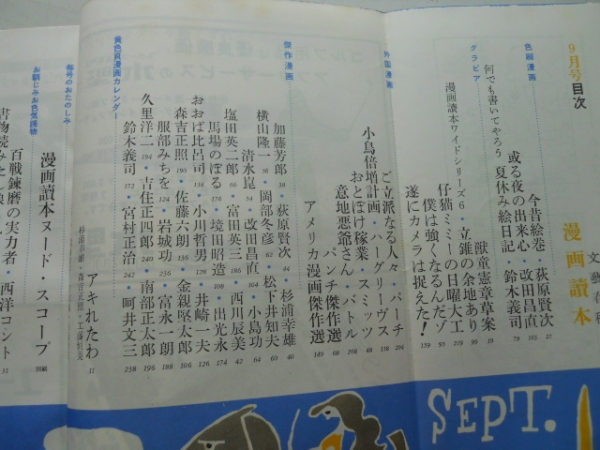 9月号目次
漫画讀本
文藝春秋
色刷漫画
今昔絵巻・荻原賢次
或る夜の出来心・改田昌直
何でも書いてやろう 夏休み絵日記・鈴木義司
グラビア
獣童憲章草案
漫画讀本ワイドシリーズ6・立錐の余地あり
仔猫ミミーの日曜大工
僕は強くなるんだゾ
遂にカメラは捉えた!
外国漫画
ご立派なる人々 パーチ
小鳥倍増計画・ハーグリーヴス
おとぼけ稼業 スミッツ
意地悪爺さん・バトル
パンチ傑作選
アメリカ漫画傑作選
傑作漫画
加藤芳郎・荻原賢次・杉浦幸雄
横山隆一・岡部冬彦・松下井知夫
清水崑・改田昌直・小島功
塩田英二郎・富田英三・西川辰美
馬場のぼる・境田昭造・出光永
おおば比呂司・小川哲男・井崎一夫
森吉正照・佐藤六朗・金親堅太郎
服部みちを・岩城功・富永一朗
久里洋二・吉住正四郎・南部正太郎
鈴木義司・宮村正治・阿井文三
黄色頁漫画カレンダー
アキれたわ
毎号のおたのしみ
漫画讀本ヌード・スコープ
お馴じみお色気揮物
百戦錬磨の実力者・西洋コント
SEPT.